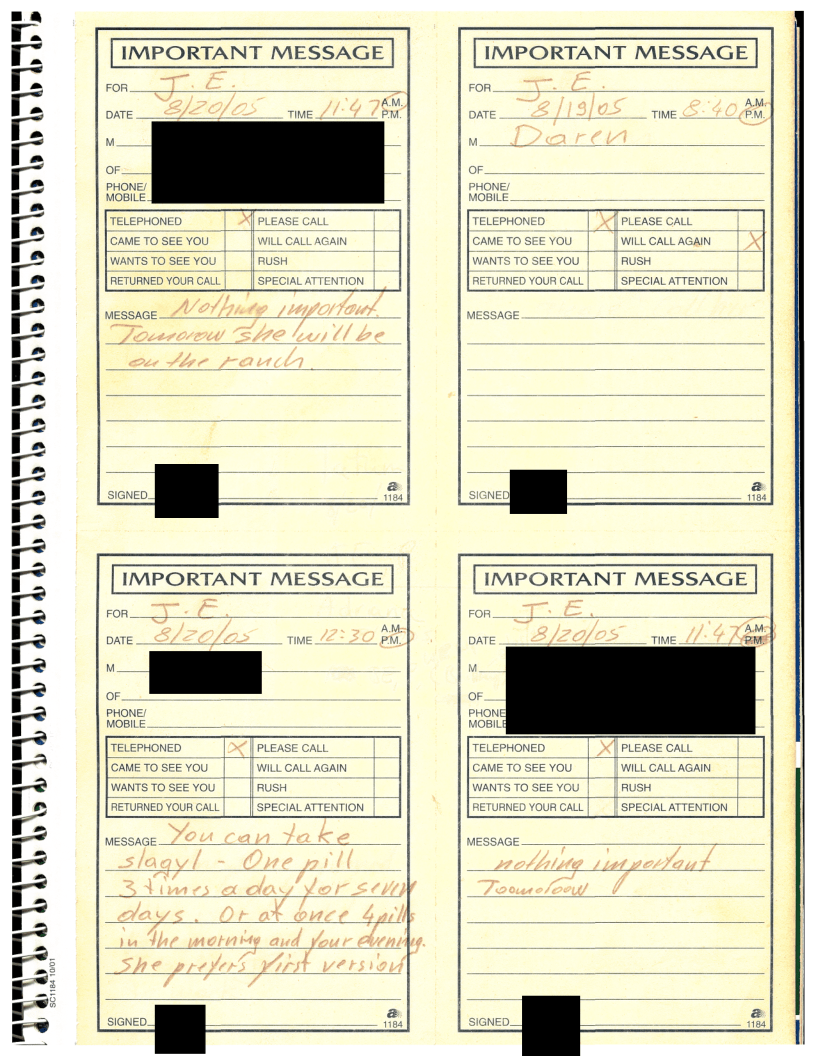 IMPORTANT MESSAGE
FOR J. E.
DATE 8/20/05 TIME 11:47 A.M. P.M.
M
OF
PHONE/
MOBILE
TELEPHONED X PLEASE CALL
CAME TO SEE YOU WILL CALL AGAIN
WANTS TO SEE YOU RUSH
RETURNED YOUR CALL SPECIAL ATTENTION
MESSAGE Nothing important.
Tomorow she will be
on the ranch.
SIGNED
a
1184
IMPORTANT MESSAGE
FOR J. E.
DATE 8/19/05 TIME 8:40 A.M. P.M.
M Daren
OF
PHONE/
MOBILE
TELEPHONED X PLEASE CALL
CAME TO SEE YOU WILL CALL AGAIN X
WANTS TO SEE YOU RUSH
RETURNED YOUR CALL SPECIAL ATTENTION
MESSAGE
SIGNED
a
1184
IMPORTANT MESSAGE
FOR J. E.
DATE 8/20/05 TIME 12:30 A.M. P.M.
M
OF
PHONE/
MOBILE
TELEPHONED X PLEASE CALL
CAME TO SEE YOU WILL CALL AGAIN
WANTS TO SEE YOU RUSH
RETURNED YOUR CALL SPECIAL ATTENTION
MESSAGE You can take
slagyl - One pill
3 times a day for seven
days. Or at once 4 pills
in the morning and four evening.
She prefers first version
SIGNED
a
1184
IMPORTANT MESSAGE
FOR J. E.
DATE 8/20/05 TIME 11:47 A.M. P.M.
M
OF
PHONE
MOBILE
TELEPHONED X PLEASE CALL
CAME TO SEE YOU WILL CALL AGAIN
WANTS TO SEE YOU RUSH
RETURNED YOUR CALL SPECIAL ATTENTION
MESSAGE
nothing important
Toomoroow
SIGNED
a
1184
SC1184 10/01